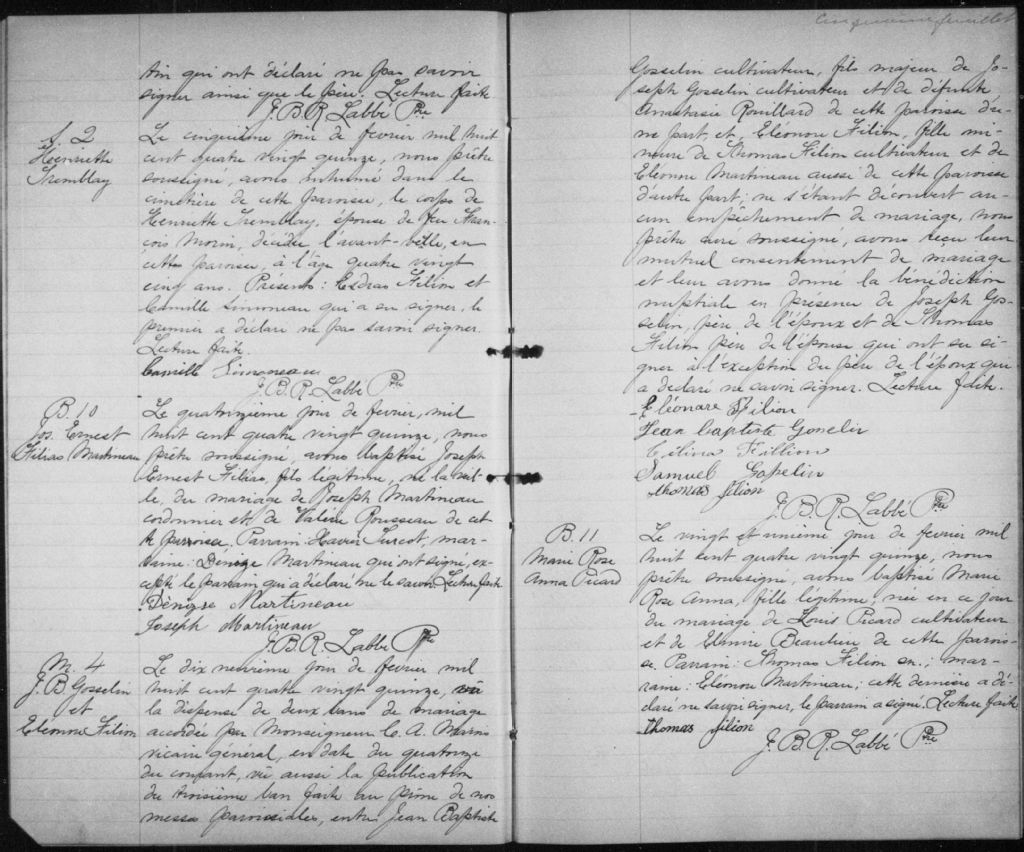 tin qui ont déclaré ne pas savoir
signer ainsi que le père. Lecture faite
J.B.R. Labbé Ptre
S. 2
Henriette
Tremblay
Le cinquième jour de fevrier mil huit
cent quatre vingt quinze, nous prêtre
soussigné, avons inhumé dans le
cimetière de cette paroisse, le corps de
Henriette Tremblay, épouse de feu Fran-
çois Morin, décédée l'avant-veille, en
cette paroisse, à l'âge quatre vingt
cinq ans. Présents: Esdras Filion et
Camille Simoneau qui a su signer, le
premier a déclaré ne pas savoir signer.
Lecture faite.
Camille Simoneau
J.B.R. Labbé Ptre
B. 10
Jos. Ernest
Filias Martineau
Le quatorzième jour de fevrier, mil
huit cent quatre vingt quinze, nous
prêtre soussigné, avons baptisé Joseph
Ernest Filias, fils légitime, né la veil-
le, du mariage de Joseph Martineau
cordonnier et de Valérie Rousseau de cet-
te paroisse. Parrain: Xavier Turcot, mar-
raine: Dényse Martineau qui ont signé, ex-
cepté le parrain qui a déclaré ne le savoir. Lecture faite
Dényse Martineau
Joseph Martineau
J.B.R. Labbé Ptre
M. 4
J.B. Gosselin
et
Eléonore Filion
Le dix neuvième jour de fevrier mil
huit cent quatre vingt quinze, vû
la dispense de deux bans de mariage
accordée par Monseigneur C. A. Marois
vicaire général, en date du quatorze
du courant, vû aussi la publication
du troisième ban faite au prône de nos
messes paroissiales, entre Jean Baptiste
Cinquième feuillet
Gosselin cultivateur, fils majeur de Jo-
seph Gosselin cultivateur et de défunte
Anastasie Rouillard de cette paroisse d'u-
ne part et, Eléonore Filion, fille mi-
neure de Thomas Filion cultivateur et de
Eléonore Martineau aussi de cette paroisse
d'autre part; ne s'étant découvert au-
cun empêchement de mariage, nous
prêtre curé soussigné, avons reçu leur
mutuel consentement de mariage
et leur avons donné la bénédiction
nuptiale en présence de Joseph Gos-
selin, père de l'époux et de Thomas
Filion père de l'épouse qui ont su si-
gner à l'exception du père de l'époux qui
a déclaré ne savoir signer. Lecture faite.
Eléonare Filion
Jean Baptiste Gosselin
Célina Fillion
Samuel Gosselin
thomas filion
J.B.R. Labbé Ptre
B. 11
Marie Rose
Anna Picard
Le vingt et unième jour de fevrier mil
huit cent quatre vingt quinze, nous
prêtre soussigné, avons baptisé Marie
Rose Anna, fille légitime, née en ce jour
du mariage de Louis Picard cultivateur
et de Elmire Beaulieu de cette parois-
se. Parrain: Thomas Filion sr.; mar-
raine: Eléonore Martineau; cette dernière a dé-
claré ne savoir signer, le parrain a signé. Lecture faite
thomas filion
J.B.R. Labbé Ptre